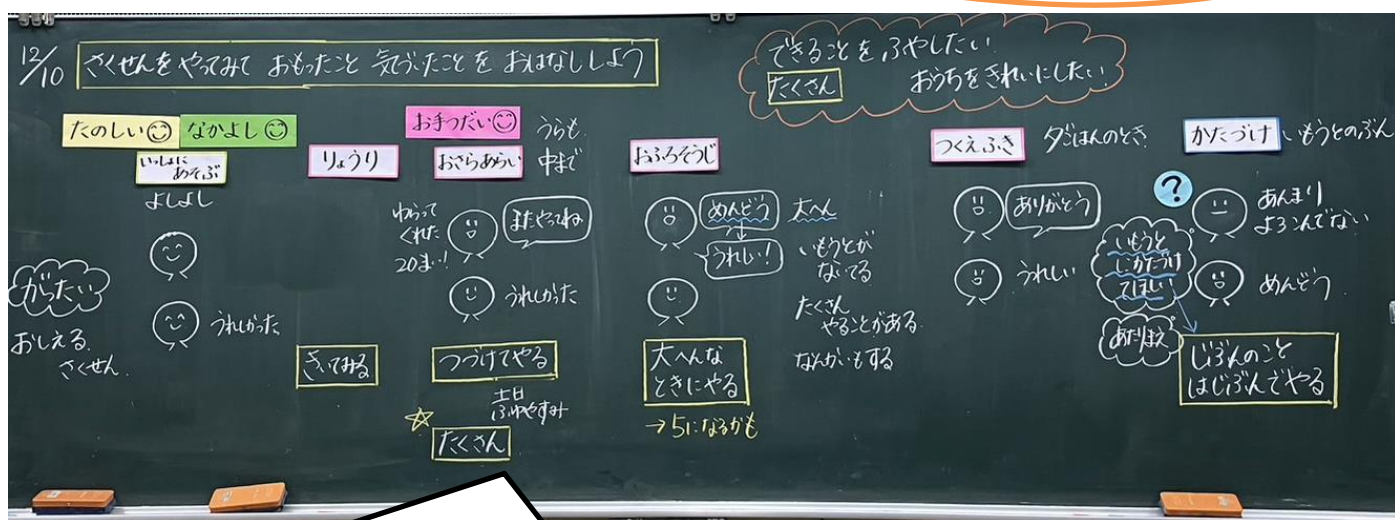 12/10
さくせんをやってみて おもったこと 気づいたことを おはなししよう
できることを ふやしたい
たくさん
おうちをきれいにしたい!
たのしい
なかよし
いっしょに
あそぶ
よしよし
うれしかった
がったい
おしえる
さくせん
りょうり
きいてみる
お手つだい
おさらあらい
うらも
中まで
わらって
くれた
20まい!
またやってね
うれしかった
つづけてやる
土日
ふゆやすみ
たくさん
おふろそうじ
めんどう
うれしい!
大へん
いもうとが
ないてる
たくさん
やることがある
なんかいもする
大へんな
ときにやる
→5になるかも
つくえふき
夕ごはんのとき
ありがとう
うれしい
かたづけ
いもうとのぶん
?
あんまり
よろこんでない
いもうと
にかたづけ
てほしい
めんどう
あたりまえ
じぶんのこと
はじぶんでやる